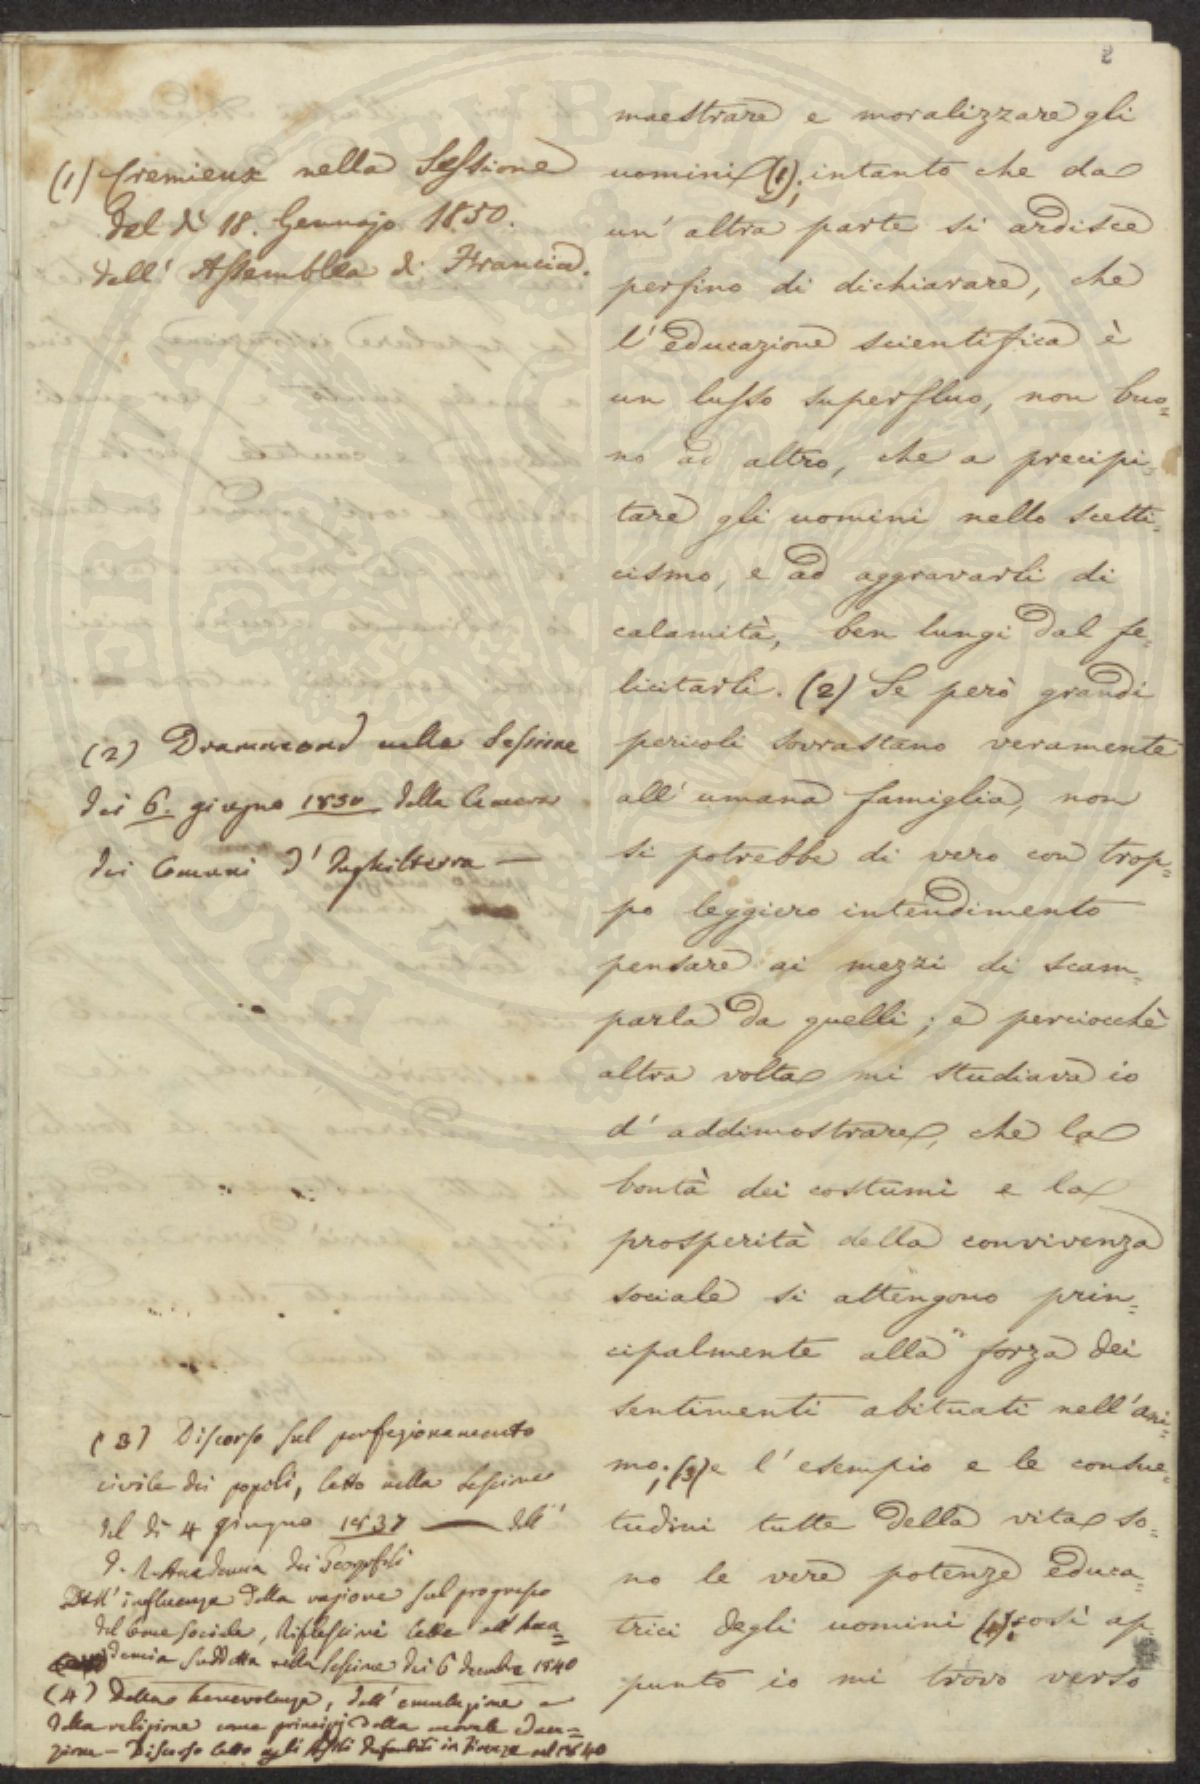 2
maestrare e moralizzare gli
uomini (1); intanto che da
un' altra parte si ardisce
perfino di dichiarare, che
l'educazione scientifica è
un lusso superfluo, non buo=
no ad altro, che a precipi=
tare gli uomini nello scetti=
cismo, e ad aggravarli di
calamità, ben lungi dal fe=
licitarli. (2) Se però grandi
pericoli sovrastano veramente
all' umana famiglia, non
si potrebbe di vero con trop=
po leggiero intendimento
pensare ai mezzi di scam=
parla da quelli; e perciocchè
altra volta mi studiava io
d' addimostrare, che la
bontà dei costumi e la
prosperità della convivenza
sociale si attengono prin=
cipalmente alla forza dei
sentimenti abituati nell'ani=
mo; (3) e l' esempio e le consue=
tudini tutte della vita so=
no le vere potenze educa=
trici degli uomini (4); così ap=
punto io mi trovo verso
(1) Cremieux nella Sessione
del dì 18. Gennajo 1850.
dell' Assemblea di Francia.
(2) Drummond nella Sessione
dei 6. giugno 1850 della Camera
dei Comuni d' Inghilterra —
(3) Discorso sul perfezionamento
civile dei popoli, letto nella Sessione
del dì 4 giugno 1837 — dell'
I. R. Accademia dei Georgofili
Dell' influenza della ragione sul progresso
del bene sociale, Riflessioni lette all' Acca=
demia suddetta nella Sessione dei 6 decembre 1840
(4) Della benevolenza, dell' emulazione e
della religione come principj della morale educa=
zione — Discorso letto agli Asili Infantili in Firenze nel 1840